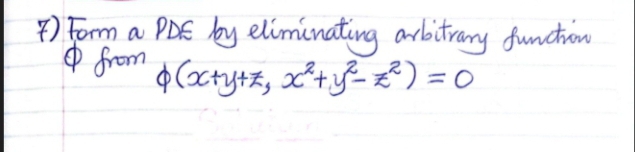 7) Form a PDE by eliminating arbitrary function
Φ from φ(x+y+z, x²+y²-z²) = 0